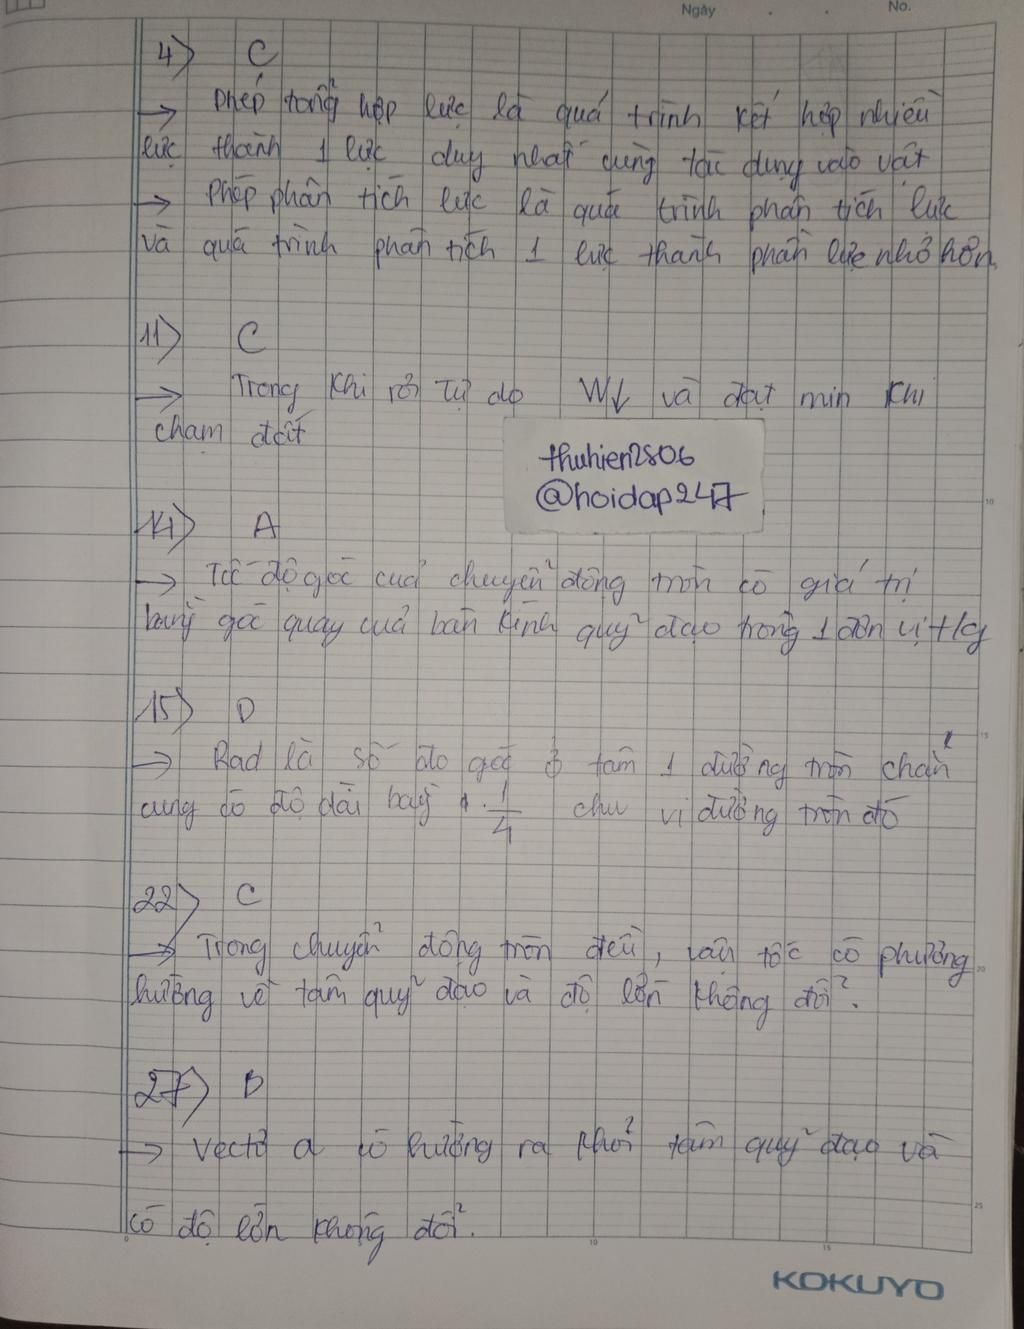 Ngày . . No.
4) C
→ Phép tổng hợp lực là quá trình kết hợp nhiều
lực thành 1 lực duy nhất cùng tác dụng vào vật
→ Phép phân tích lực là quá trình phân tích lực
và quá trình phân tích 1 lực thành phần lực nhỏ hơn.
11) C
→ Trong khi rơi tự do W↓ và đạt min khi
chạm đất
thuhien2806
@hoidap247
14) A
→ Tốc độ góc của chuyển động tròn có giá trị
bằng góc quay của bán kính quỹ đạo trong 1 đơn vị tg
15) D
→ Rad là số đo góc ở tâm 1 đường tròn chắn
cung có độ dài bằng 1/4 chu vi đường tròn đó
22) C
→ Trong chuyển động tròn đều, vận tốc có phương
hướng về tâm quỹ đạo và độ lớn không đổi.
27) D
→ Vectơ a có hướng ra khỏi tâm quỹ đạo và
có độ lớn không đổi.
10
15
20
25
0 10 15
KOKUYO